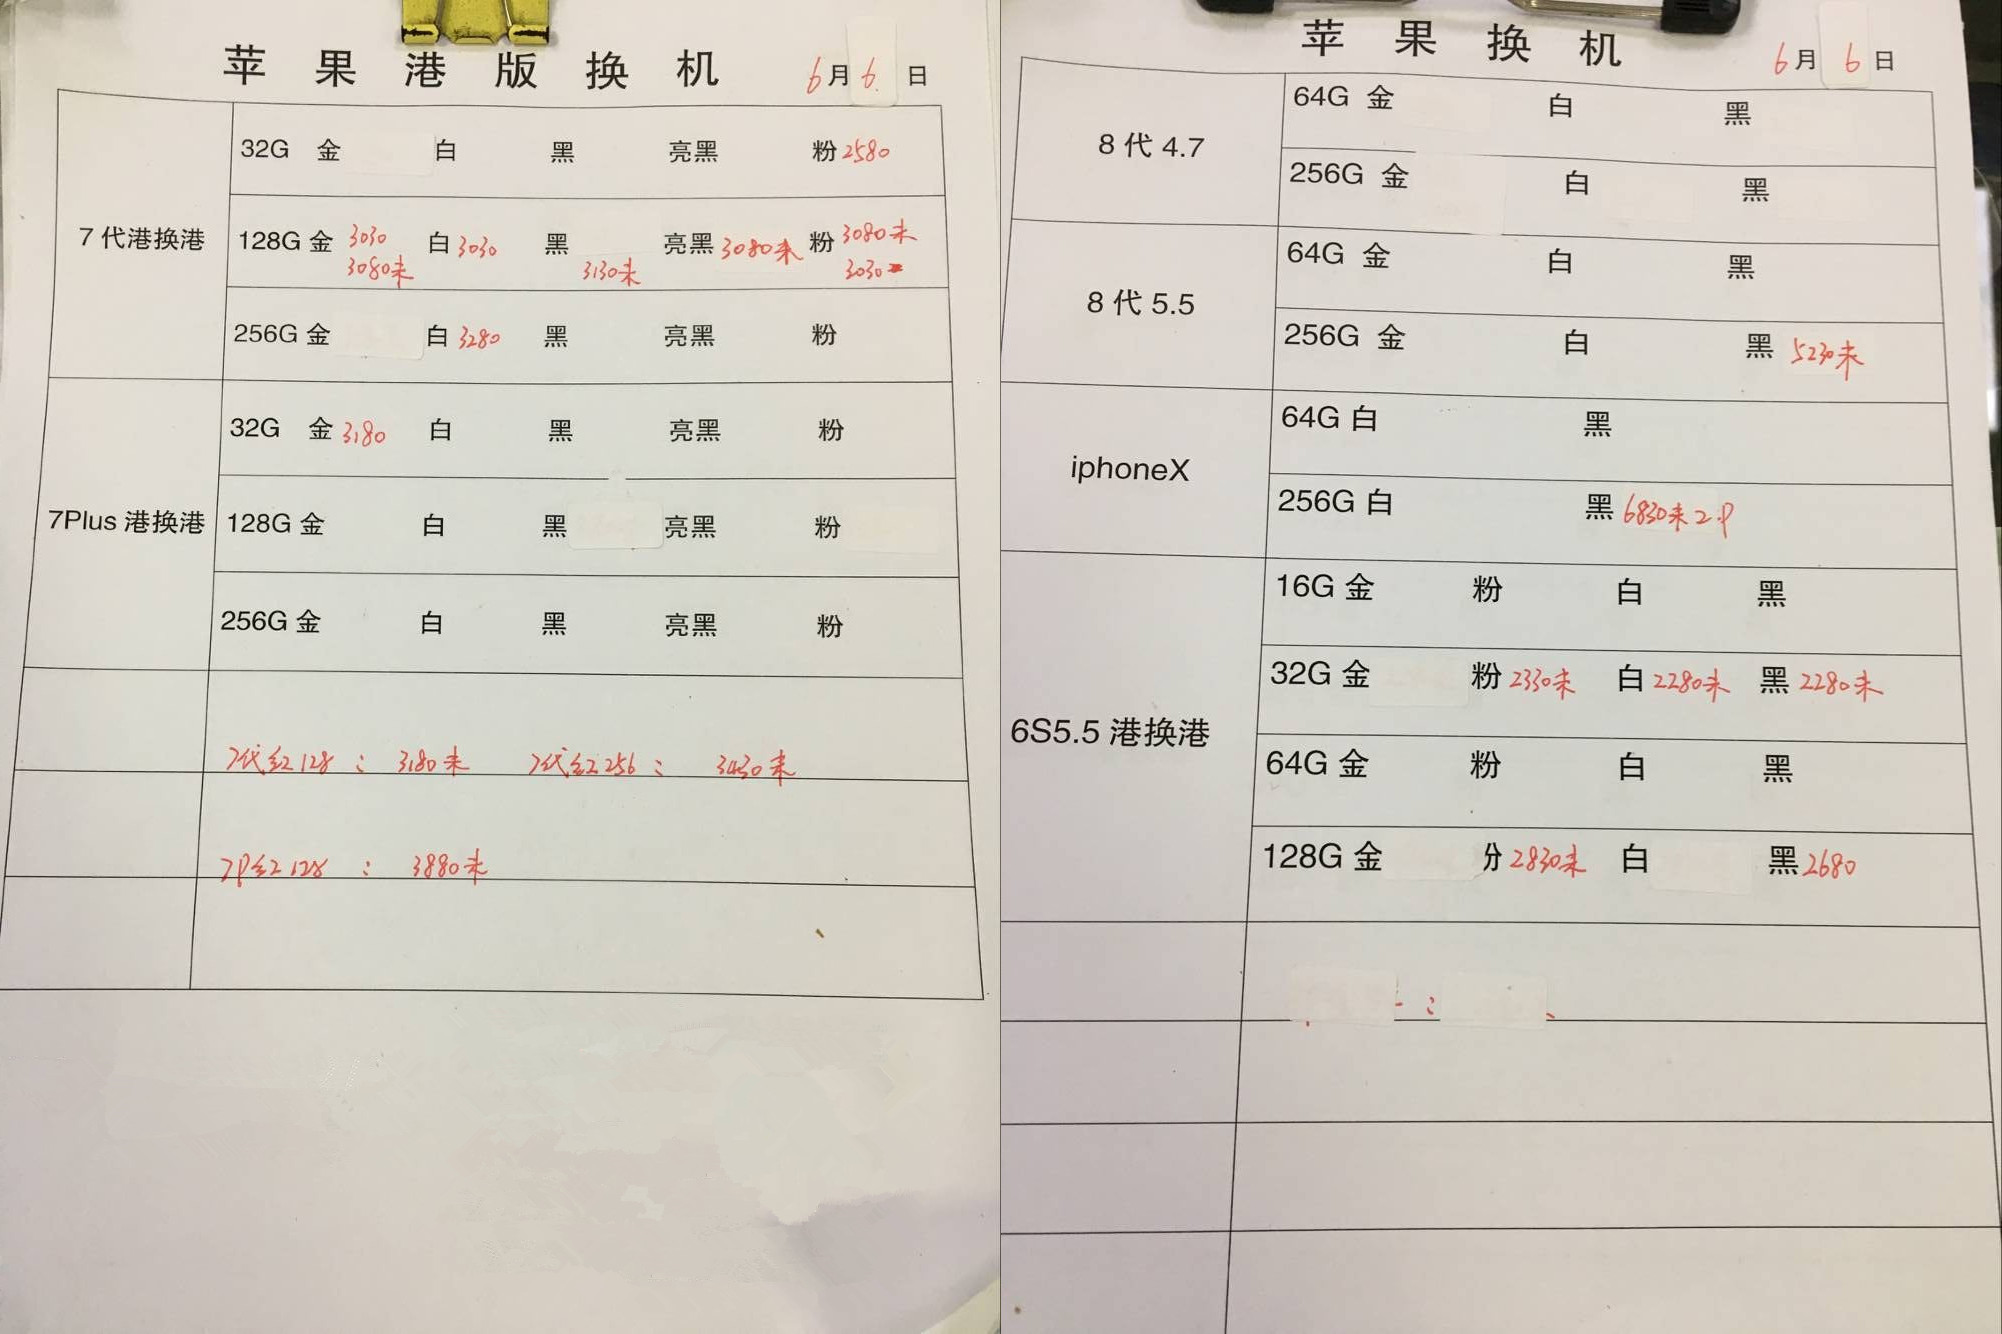 苹果港版换机 6月6日
7代港换港
32G 金 白 黑 亮黑 粉2580
128G 金 3030 白3030 黑 亮黑3080未 粉3080未
3080未 3130未 3030
256G 金 白3280 黑 亮黑 粉
7Plus 港换港
32G 金3180 白 黑 亮黑 粉
128G 金 白 黑 亮黑 粉
256G 金 白 黑 亮黑 粉
7代红128: 3180未 7代红256: 3430未
7P红128: 3880未
苹果换机 6月6日
8代4.7
64G 金 白 黑
256G 金 白 黑
8代5.5
64G 金 白 黑
256G 金 白 黑 5230未
iphoneX
64G 白 黑
256G 白 黑 6830未
6S5.5 港换港
16G 金 粉 白 黑
32G 金 粉2330未 白2280未 黑2280未
64G 金 粉 白 黑
128G 金 2830未 白 黑2680